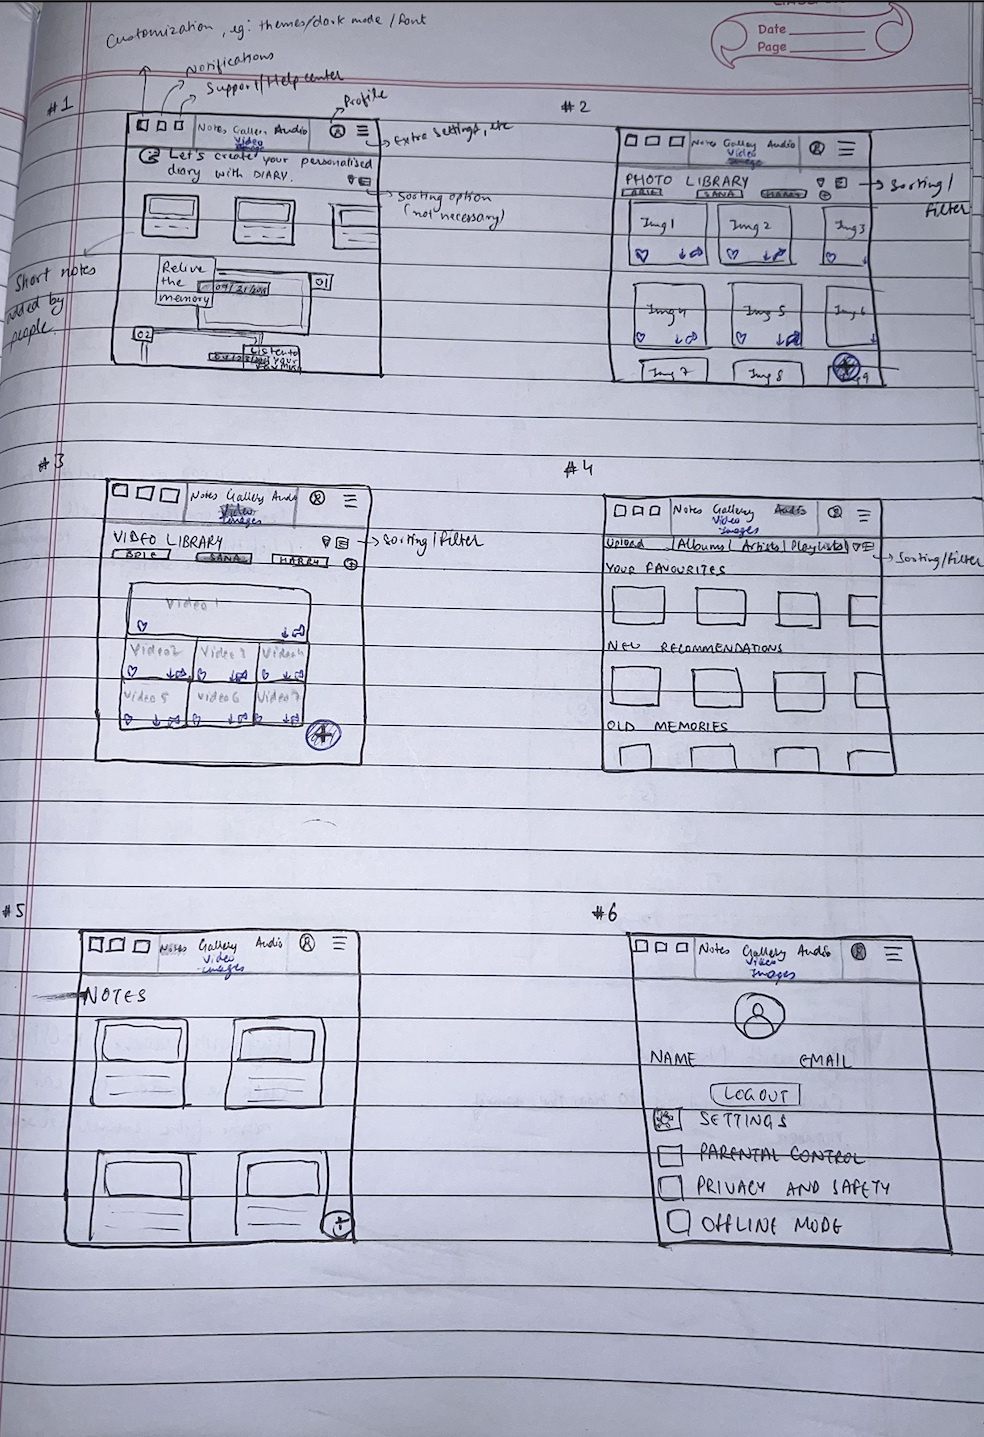 Date
Page
Customization, eg: themes/dark mode/font
Notifications
Support/Help center
Profile
Extra settings, etc
#1
Notes Gallery Audio
Video
Images
Let's create your personalised
diary with DIARY.
Sorting option
(not necessary)
Short notes
added by
people.
Relive
the
memory
01
02
Listen to
your
#2
Notes Gallery Audio
Video
Images
PHOTO LIBRARY
ARIE SANA HARRY
Sorting/
filter
Img 1 Img 2 Img 3
Img 4 Img 5 Img 6
Img 7 Img 8 Img 9
#3
Notes Gallery Audio
Video
Images
VIDEO LIBRARY
ARIE SANA HARRY
Sorting/filter
Video 1
Video 2 Video 3 Video 4
Video 5 Video 6 Video 7
#4
Notes Gallery Audio
Video
Images
Upload |Albums| Artists| Playlists|
Sorting/Filter
YOUR FAVOURITES
NEW RECOMMENDATIONS
OLD MEMORIES
#5
Notes Gallery Audio
Video
Images
NOTES
#6
Notes Gallery Audio
Video
Images
NAME EMAIL
LOGOUT
SETTINGS
PARENTAL CONTROL
PRIVACY AND SAFETY
OFFLINE MODE